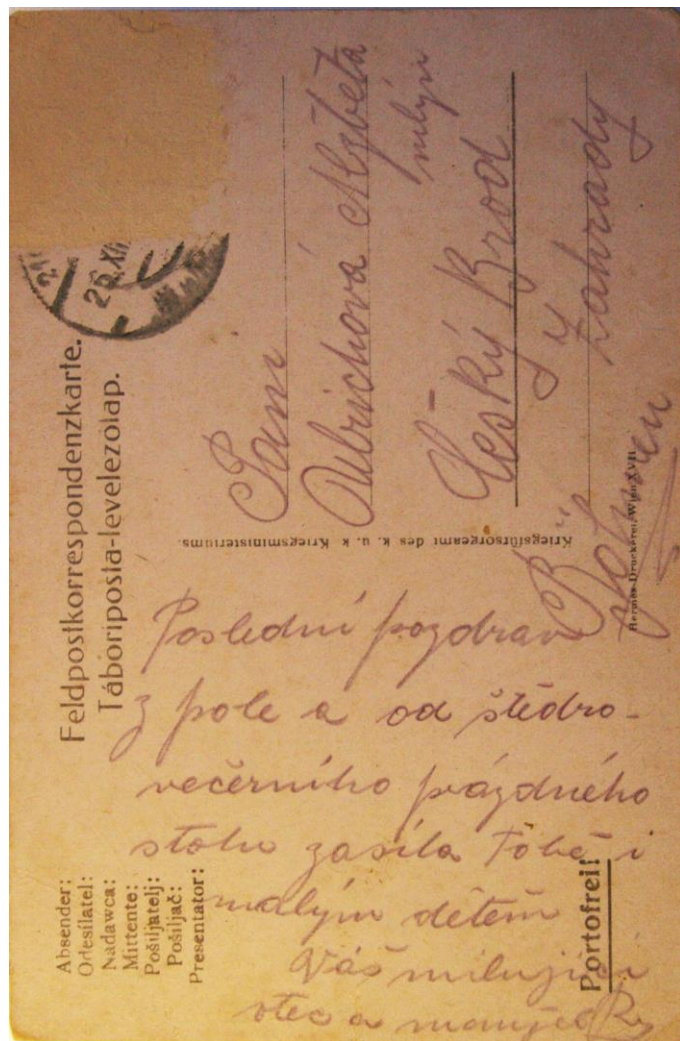 Feldpostkorrespondenzkarte.
Tábori posta-levelezőlap.
26 XII
Paní
Ulrichová Alžběta
mlýn
Český Brod
Zahrady
Böhmen
Kriegsfürsorgeamt des k. u. k Kriegsministeriums.
Hermes-Druckerei, Wien XVII
Absender:
Odesílatel:
Nadawca:
Mittente:
Pošiljatelj:
Pošiljač:
Presentator:
Portofrei!
Poslední pozdrav
z pole a od štědro-
večerního prázdného
stolu zasílá Tobě i
malým dětem
Váš milující
otec a manžel